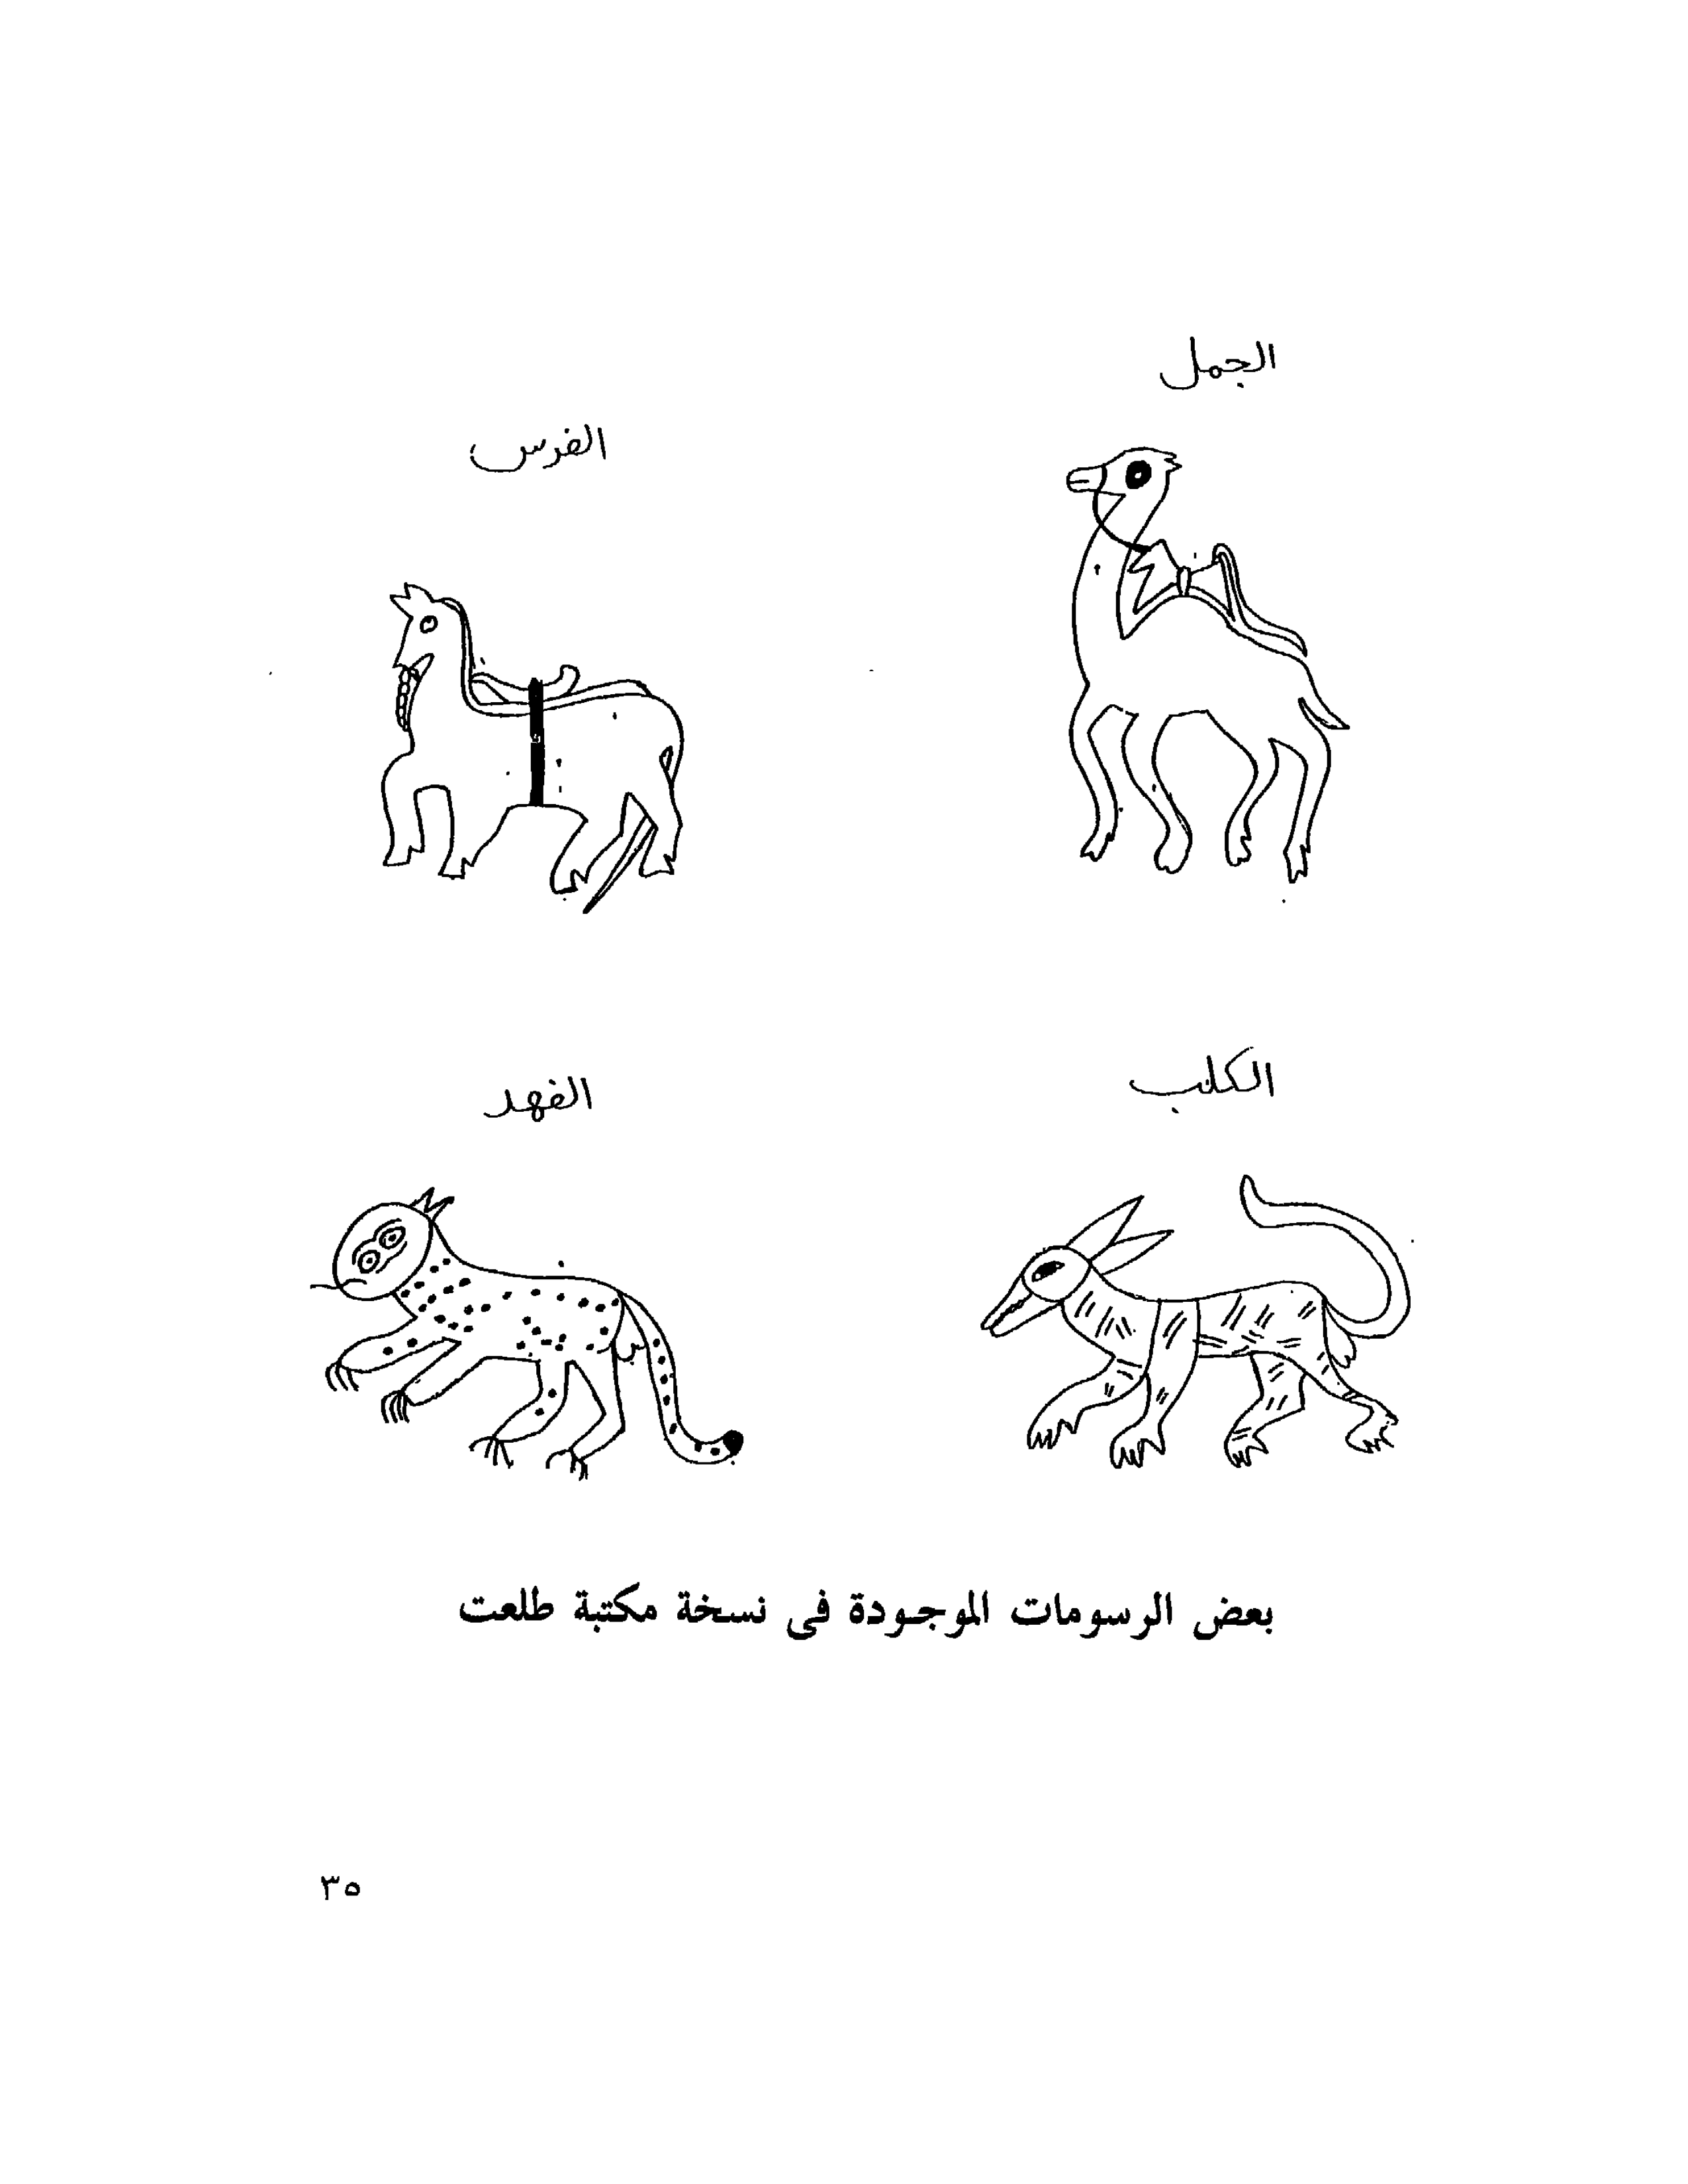 الجمل
الفرس
الكلب
الفهد
بعض الرسومات الموجودة فى نسخة مكتبة طلعت
٣٥